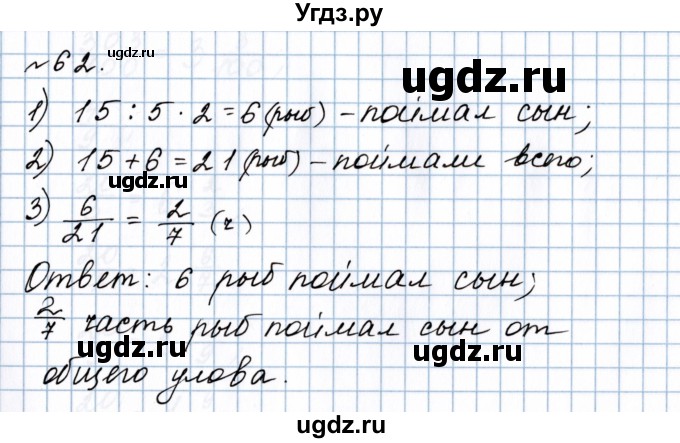 Угдз.ру
№62.
1) 15 : 5 · 2 = 6 (рыб) – поймал сын;
2) 15 + 6 = 21 (рыб) – поймали всего;
3) 6/21 = 2/7 (ч)
Ответ: 6 рыб поймал сын;
2/7 часть рыб поймал сын от
общего улова.
ugdz.ru
ugdz.ru
ugdz.ru
ugdz.ru
ugdz.ru
ugdz.ru
ugdz.ru
ugdz.ru
ugdz.ru